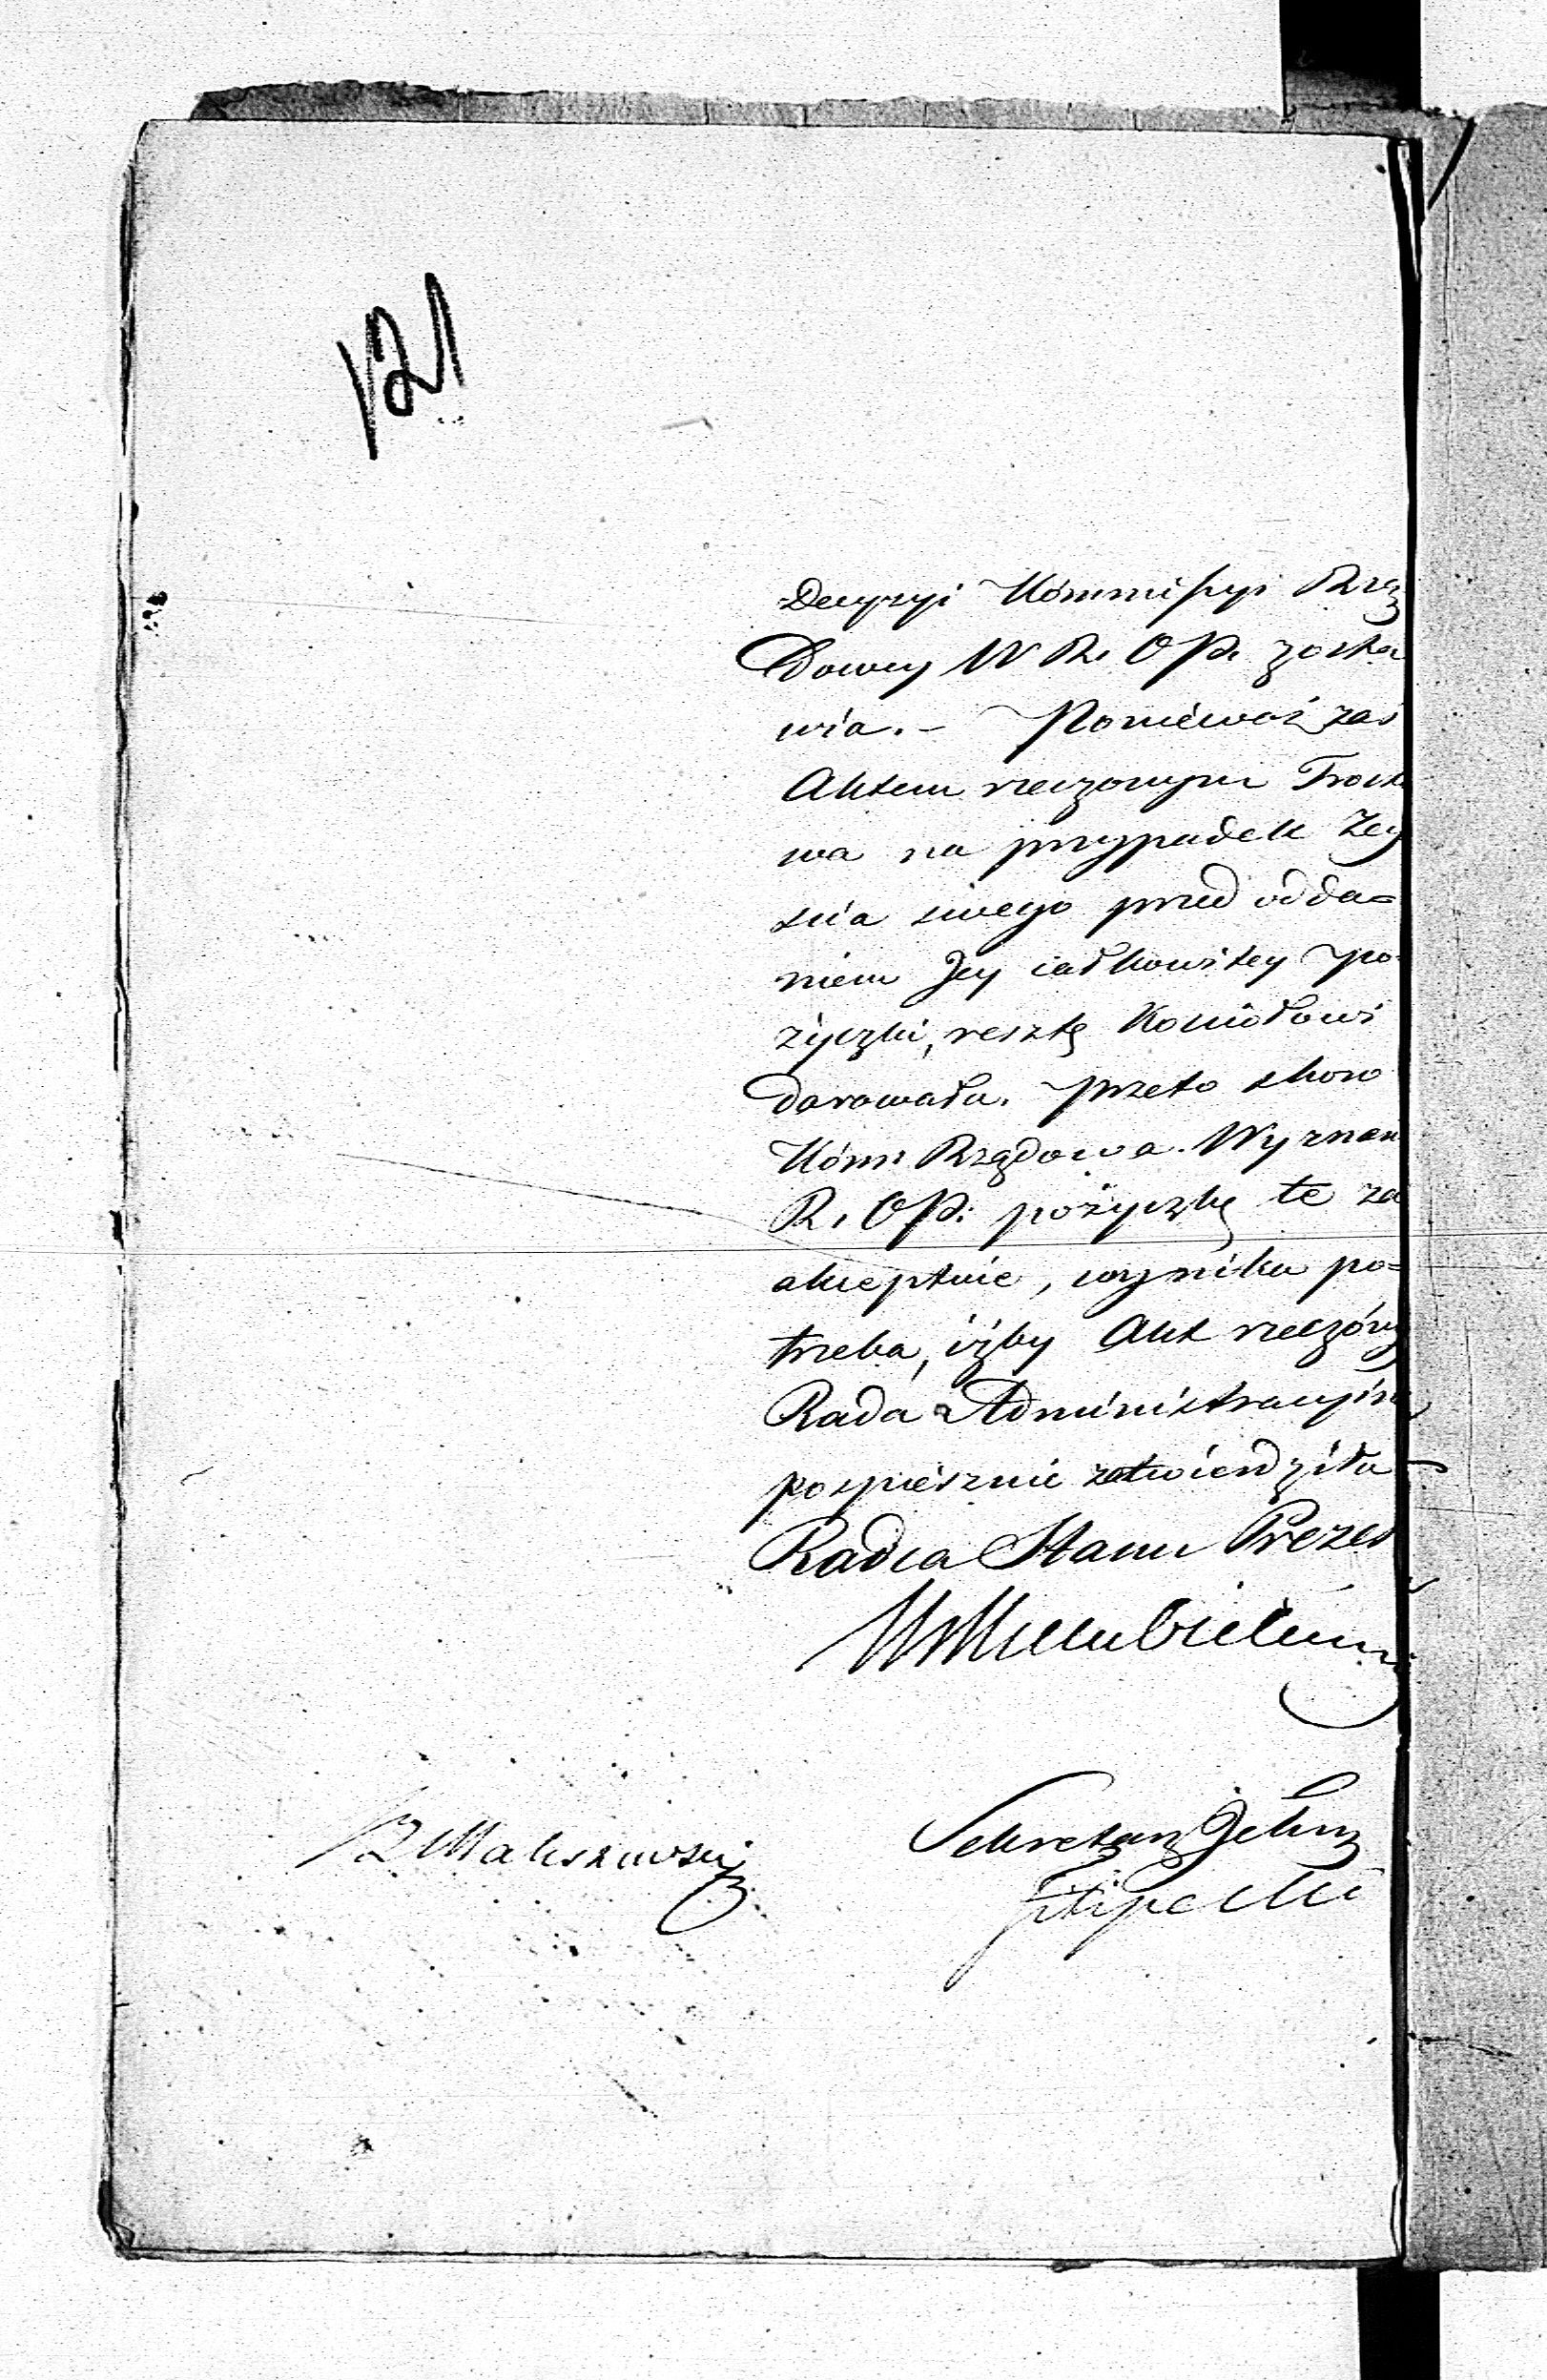 121
Decyzyi Kómmissyi Rzą
Dowey W R. O P. zosta
wia. – Poniéważ zaś
Aktem rzeczonym Trosk
wa na przypadek Zey
ścia swego przed odda=
niem Jey całkowitey po
życzki, resztę Kościołowi
darowała. przeto skoro
Kóm: Rządowa. Wyznań
R. O P: pożyczkę te za
akceptuie, wynika po=
trzeba, iżby Akt rzeczóny
Rada Administracyina
pospiesznie zatwierdziła
Radca Stanu Prezes
Sekretarz Jelny
Filipecki
B Maliszewski